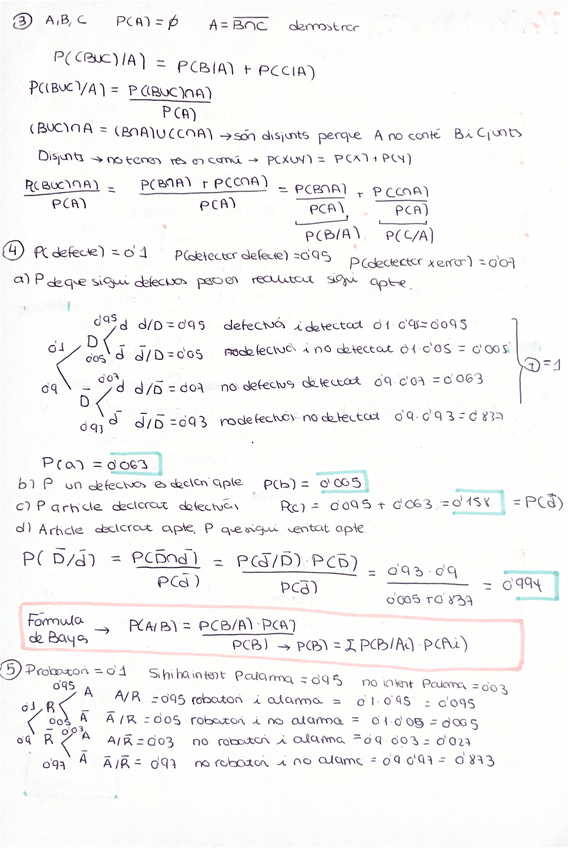 ③ A, B, C P(A) = ϕ A = \overline{B∩C} demostrar
P((B∪C)/A) = P(B/A) + P(C/A)
P((B∪C)/A) = P((B∪C)∩A) / P(A)
(B∪C)∩A = (B∩A)∪(C∩A) → són disjunts perque A no conté B i C junts
Disjunts → no tenen res en comú → P(X∪Y) = P(X) + P(Y)
P((B∪C)∩A) / P(A) = P(B∩A) + P(C∩A) / P(A) = P(B∩A) / P(A) + P(C∩A) / P(A)
P(B/A) P(C/A)
④ P(defecte) = 0'1 P(detectar defecte) = 0'95 P(dectectar x error) = 0'07
a) P de que sigui defectuos però en realitat sigui apte.
0'95 d d/D = 0'95 defectuós i detectat 0'1·0'95 = 0'095
0'1 D 0'05 d̄ d̄/D = 0'05 no defectuós i no detectat 0'1·0'05 = 0'005
0'9 D̄ 0'07 d d/D̄ = 0'07 no defectuós detectat 0'9·0'07 = 0'063
0'93 d̄ d̄/D̄ = 0'93 no defectuós no detectat 0'9·0'93 = 0'837
= 1
P(a) = 0'063
b) P un defectuos es declari apte P(b) = 0'005
c) P article declarat defectuós P(c) = 0'095 + 0'063 = 0'158 = P(d)
d) Article declarat apte, P que sigui veritat apte.
P(D̄/d̄) = P(D̄∩d̄) / P(d̄) = P(d̄/D̄)·P(D̄) / P(d̄) = 0'93·0'9 / 0'005+0'837 = 0'994
Fórmula de Bayes → P(A/B) = P(B/A)·P(A) / P(B) → P(B) = Σ P(B/Ai)·P(Ai)
⑤ P robatori = 0'1 Si hi ha intent P alarma = 0'95 no intent P alarma = 0'03
0'95 A A/R = 0'95 robatori i alarma = 0'1·0'95 = 0'095
0'1 R 0'05 Ā Ā/R = 0'05 robatori i no alarma = 0'1·0'05 = 0'005
0'9 R̄ 0'03 A A/R̄ = 0'03 no robatori i alarma = 0'9·0'03 = 0'027
0'97 Ā Ā/R̄ = 0'97 no robatori i no alarma = 0'9·0'97 = 0'873